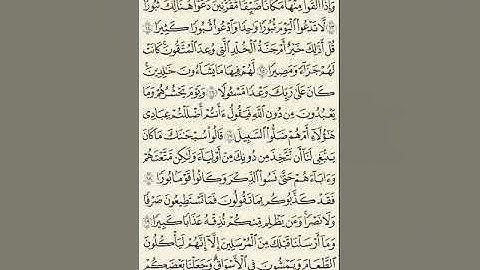 وَإِذَا أُلْقُوا۟ مِنْهَا مَكَانًا ضَيِّقًا مُّقَرَّنِينَ دَعَوْا۟ هُنَالِكَ ثُبُورًا
١٣ لَّا تَدْعُوا۟ ٱلْيَوْمَ ثُبُورًا وَٰحِدًا وَٱدْعُوا۟ ثُبُورًا كَثِيرًا ١٤
قُلْ أَذَٰلِكَ خَيْرٌ أَمْ جَنَّةُ ٱلْخُلْدِ ٱلَّتِى وُعِدَ ٱلْمُتَّقُونَ كَانَتْ
لَهُمْ جَزَآءً وَمَصِيرًا ١٥ لَّهُمْ فِيهَا مَا يَشَآءُونَ خَٰلِدِينَ
كَانَ عَلَىٰ رَبِّكَ وَعْدًا مَّسْـُٔولًا ١٦ وَيَوْمَ يَحْشُرُهُمْ وَمَا
يَعْبُدُونَ مِن دُونِ ٱللَّهِ فَيَقُولُ ءَأَنتُمْ أَضْلَلْتُمْ عِبَادِى
هَٰٓؤُلَآءِ أَمْ هُمْ ضَلُّوا۟ ٱلسَّبِيلَ ١٧ قَالُوا۟ سُبْحَٰنَكَ مَا كَانَ
يَنۢبَغِى لَنَآ أَن نَّتَّخِذَ مِن دُونِكَ مِنْ أَوْلِيَآءَ وَلَٰكِن مَّتَّعْتَهُمْ
وَءَابَآءَهُمْ حَتَّىٰ نَسُوا۟ ٱلذِّكْرَ وَكَانُوا۟ قَوْمًۢا بُورًا ١٨
فَقَدْ كَذَّبُوكُم بِمَا تَقُولُونَ فَمَا تَسْتَطِيعُونَ صَرْفًا
وَلَا نَصْرًا وَمَن يَظْلِم مِّنكُمْ نُذِقْهُ عَذَابًا كَبِيرًا ١٩
وَمَآ أَرْسَلْنَا قَبْلَكَ مِنَ ٱلْمُرْسَلِينَ إِلَّآ إِنَّهُمْ لَيَأْكُلُونَ
ٱلطَّعَامَ وَيَمْشُونَ فِى ٱلْأَسْوَاقِ وَجَعَلْنَا بَعْضَكُمْ